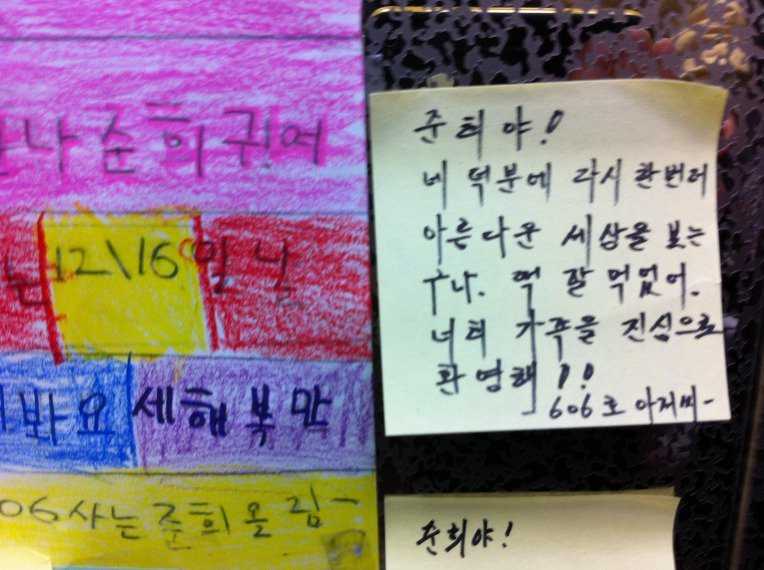 나 준희 귀여
는 12\16일 날
봐요 세해 복 만
06 사는 준희 올림-
준희야!
네 덕분에 다시 한번더
아름다운 세상을 보는
구나. 떡 잘 먹었어.
너희 가족을 진심으로
환영해!!
606호 아저씨-
준희야!